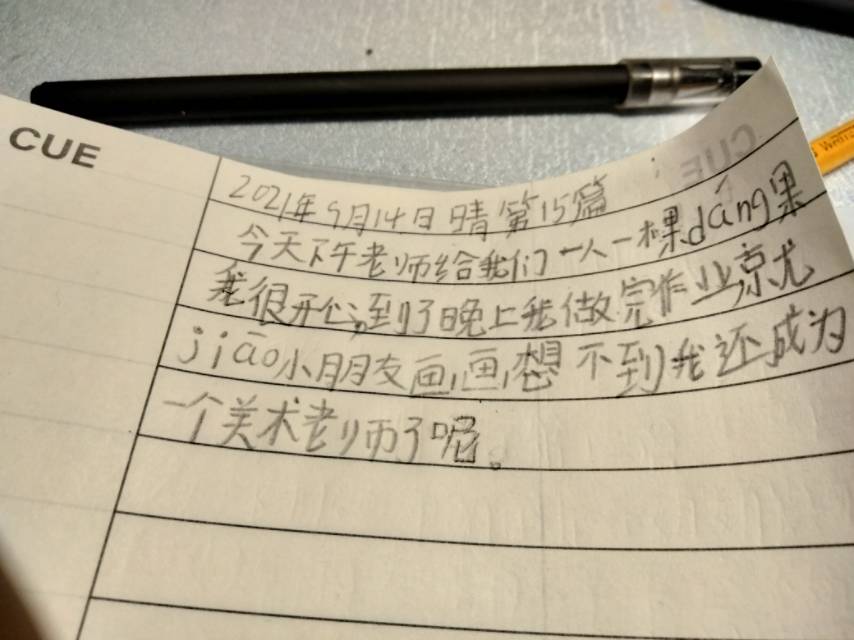 CUE
2021年9月14日 晴 第15篇
今天下午老师给我们一人一棵dáng果
我很开心,到了晚上我做完作业就
jiāo小朋友画,画,想不到我还成为
一个美术老师了呢。